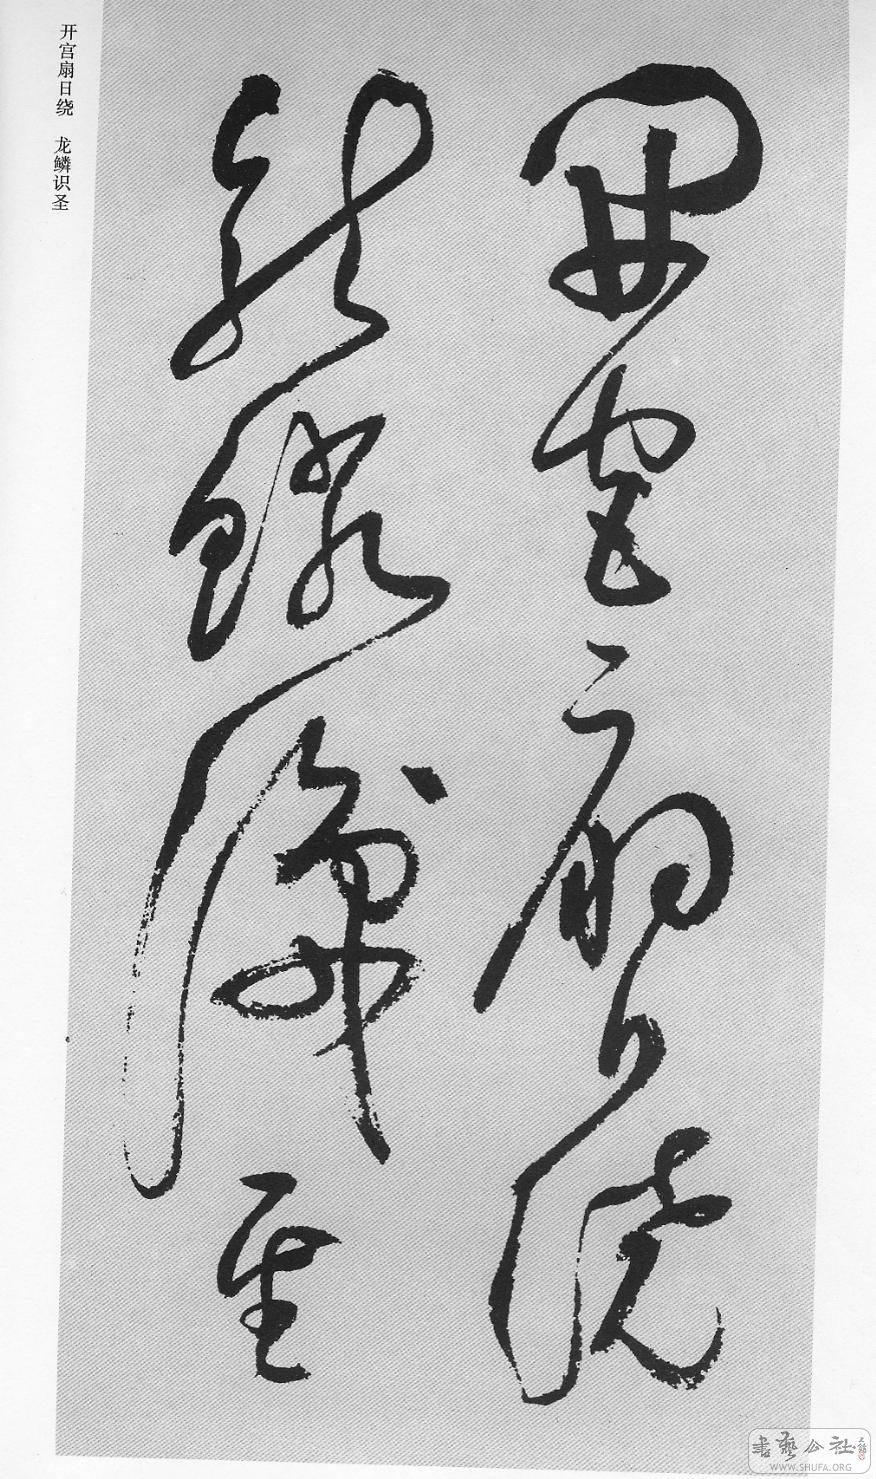 開宫扇日繞
龍鱗識聖
开宫扇日绕 龙鳞识圣
書藝公社
WWW.SHUFA.ORG